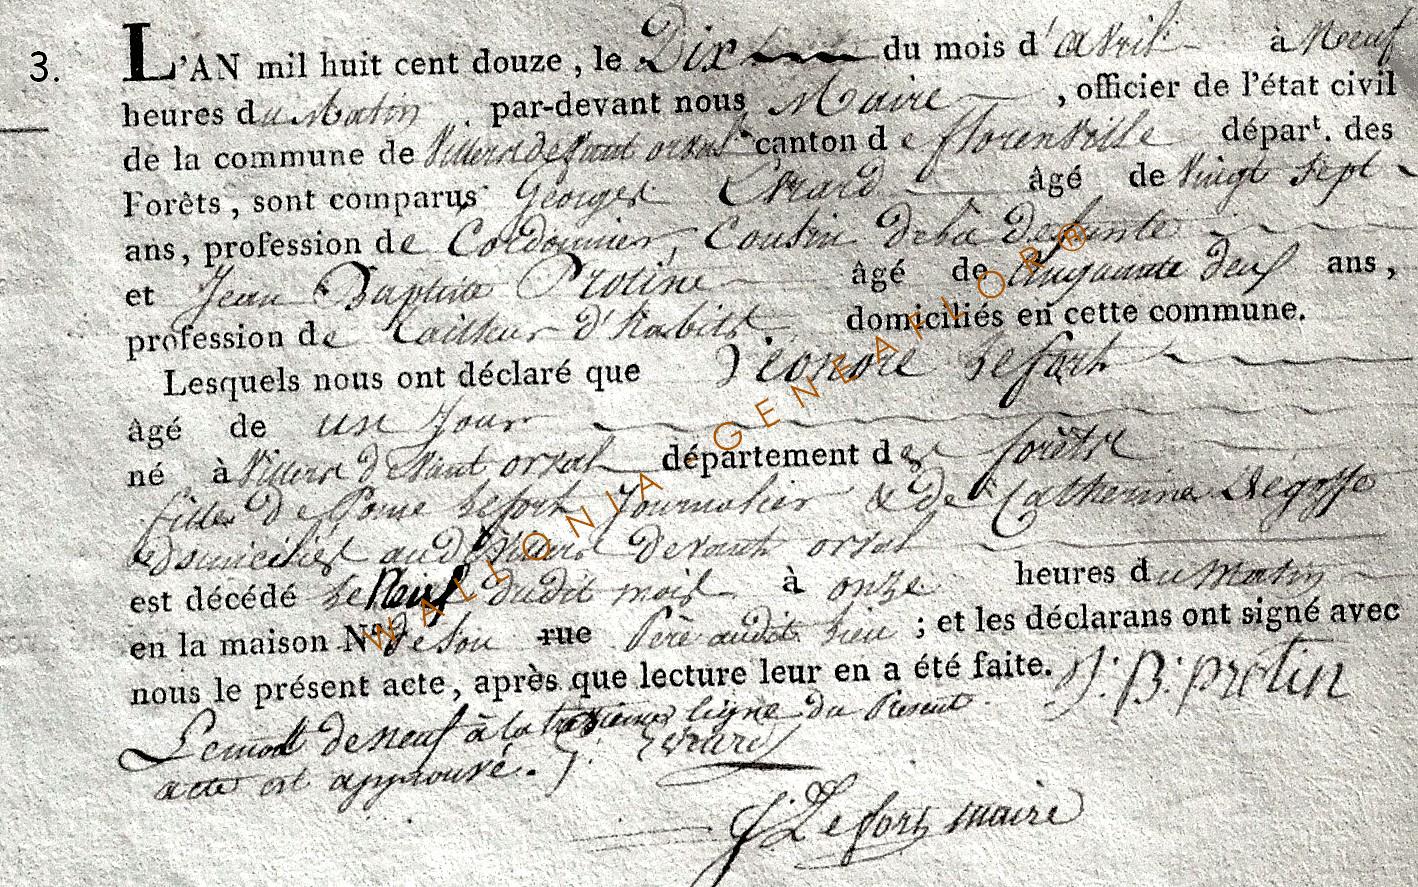 3.
L'AN mil huit cent douze, le Dix du mois d'avril à Neuf
heures du Matin par-devant nous Maire, officier de l'état civil
de la commune de Villers devant orval canton de florenville départ. des
Forêts, sont comparus Georges Evrard âgé de vingt sept
ans, profession de Cordonnier, Cousin de la defunte
et Jean Baptiste Protine âgé de Cinquante deux ans,
profession de tailleur d'habits domiciliés en cette commune.
Lesquels nous ont déclaré que Léonore Lefort
âgé de un jour
né à Villers devant orval département des forêts
fille de Lefort Journalier & de Catherine
domiciliés audit Villers devant orval
est décédé le Neuf dudit mois à onze heures du matin
en la maison No de son rue Père audit lieu ; et les déclarans ont signé avec
nous le présent acte, après que lecture leur en a été faite. J: B: protin
Le mot de neuf à la ligne du Présent
acte est approuvé. G: Evrard
J: Lefort maire
WALLONIA-GENEAFLOR®